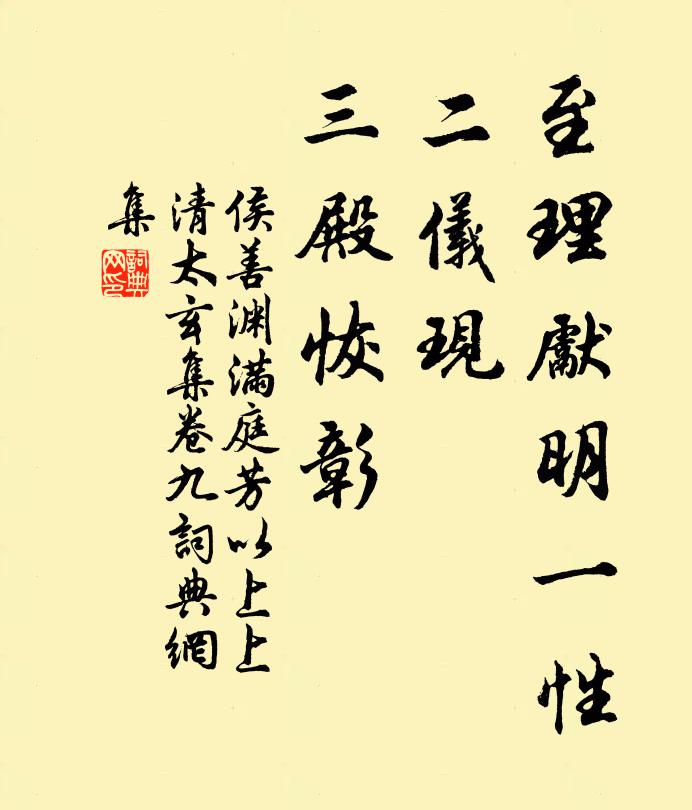 至理獻明一性
二儀現
三殿恢彰
侯善渊滿庭芳以上上
清太玄集卷九詞典網
集
詞典網印